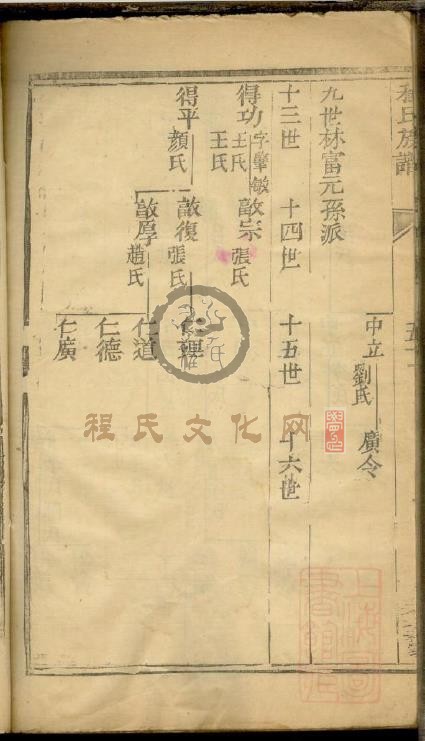 程氏族譜
中立 劉氏 廣令
九世林富元孫派
十三世 十四世 十五世 十六世
得功 字肇敏 王氏 王氏
敨宗 張氏
得平 顏氏
敨復 張氏
敨厚 趙氏
仁道
仁德
仁廣
程氏文化网
上海圖書館